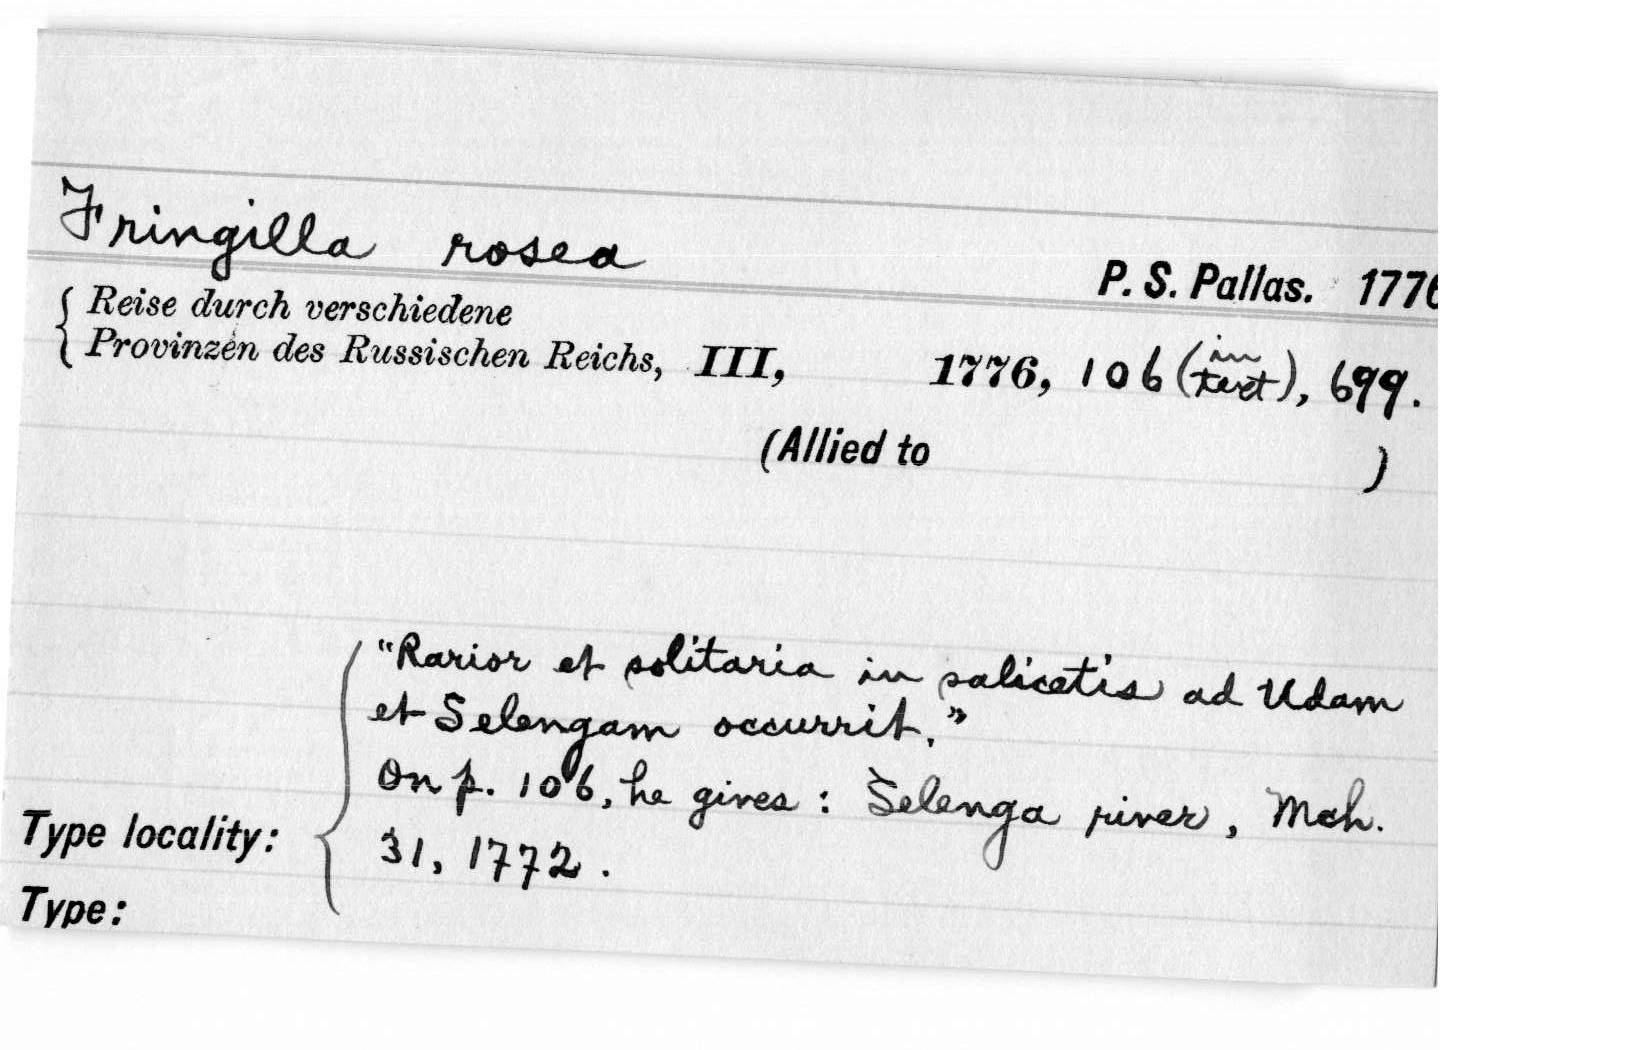 Fringilla rosea
P. S. Pallas. 1776
Reise durch verschiedene
Provinzen des Russischen Reichs, III, 1776, 106 (in text), 699.
(Allied to )
"Rarior et solitaria in salicetis ad Udam
et Selengam occurrit."
On p. 106, he gives: Selenga river, Mch.
31, 1772.
Type locality:
Type: